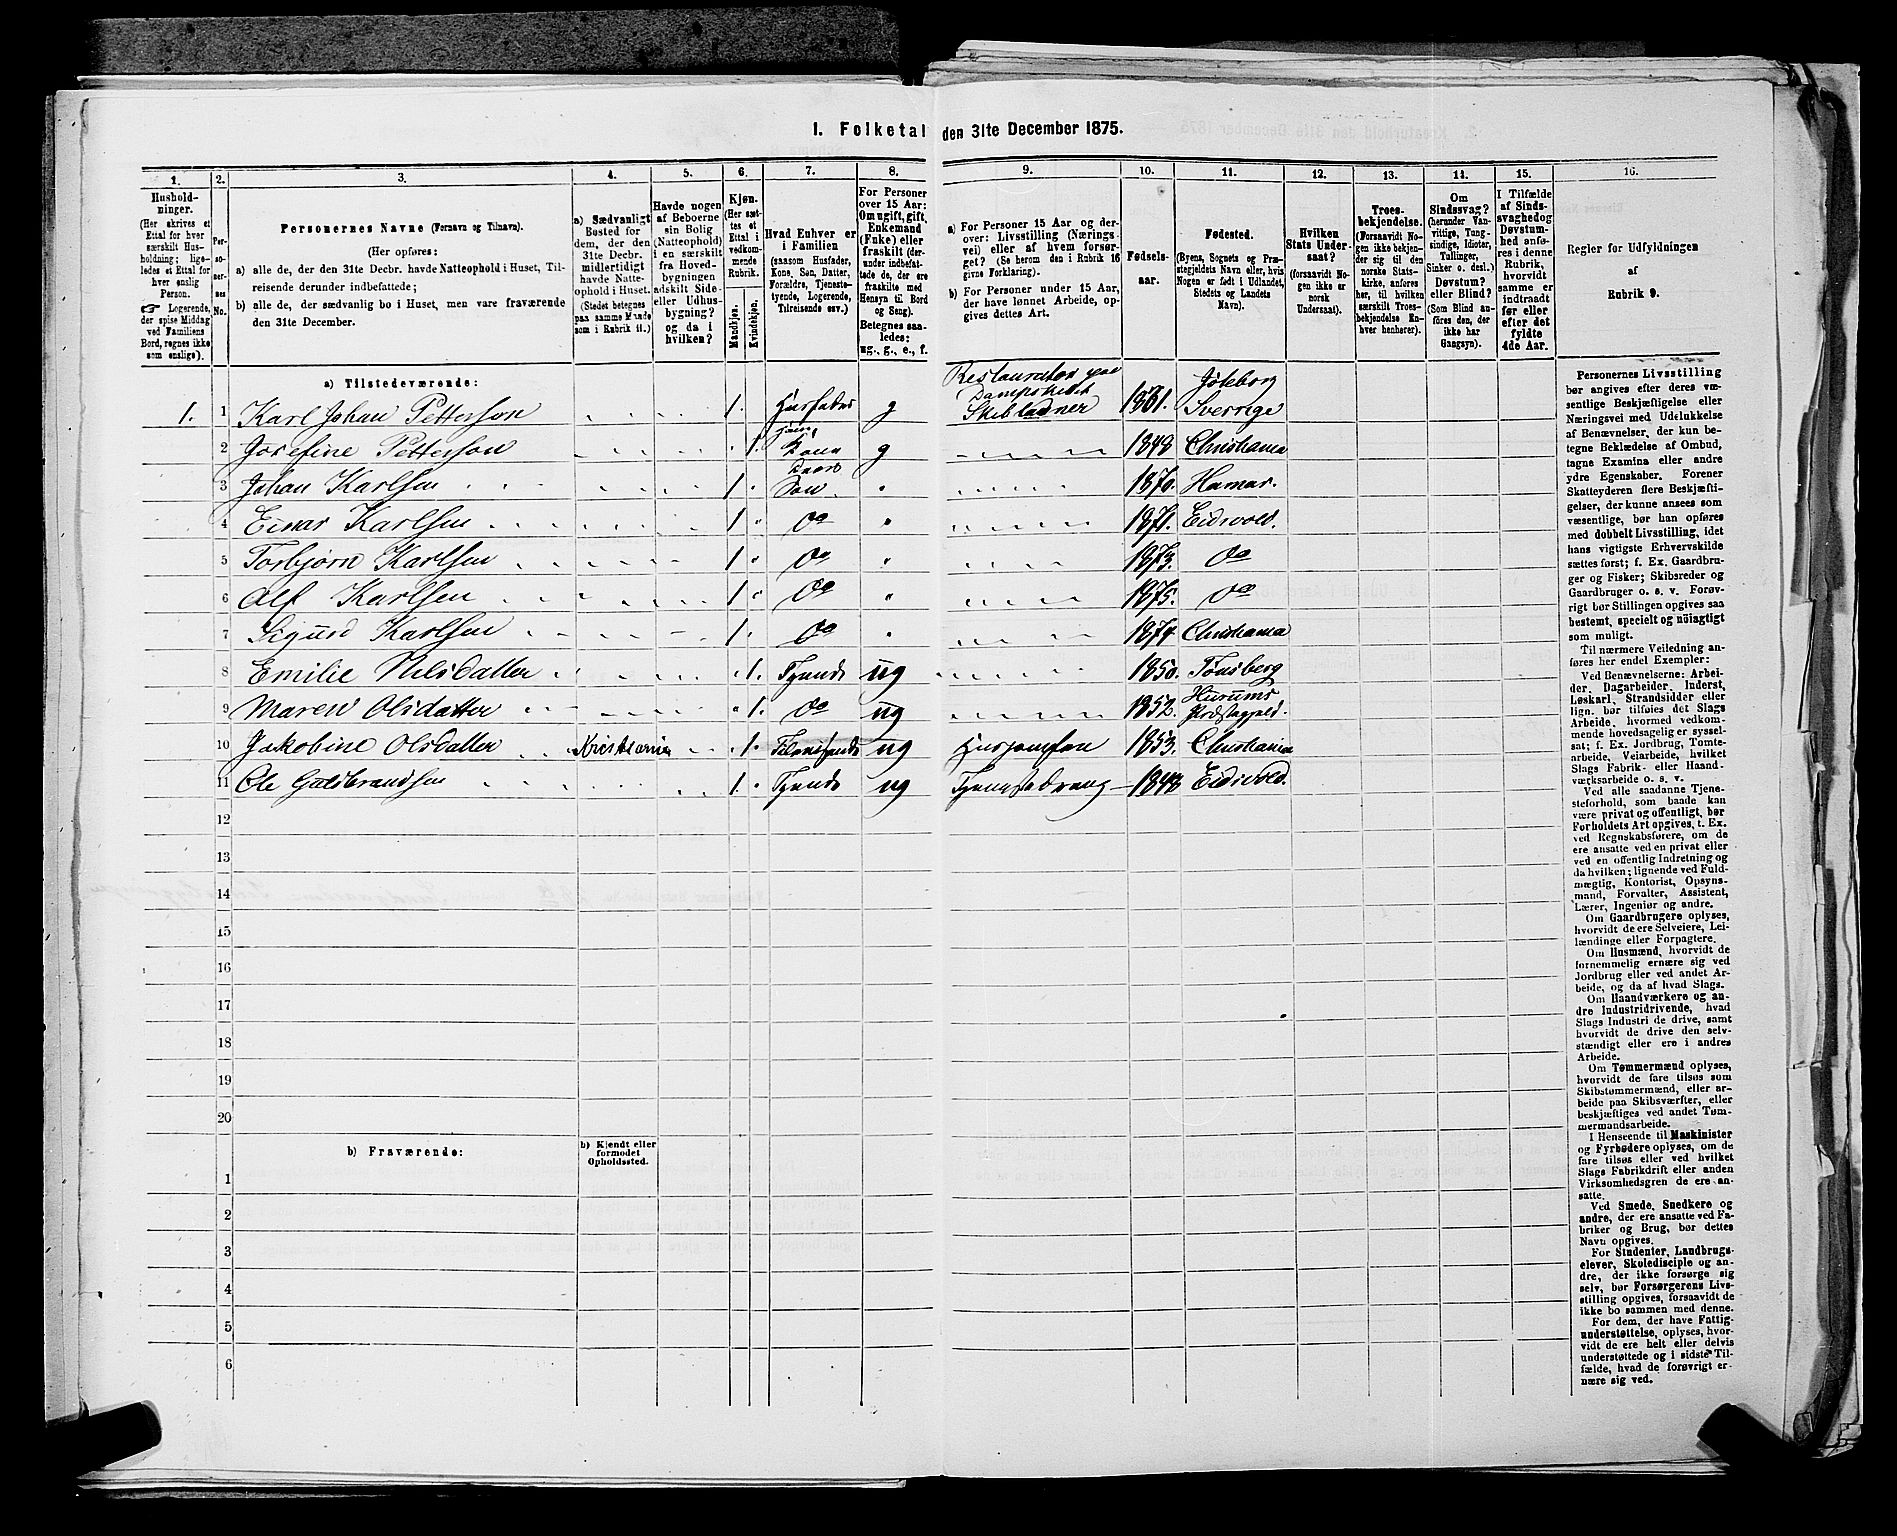 I. Folketal den 31te December 1875.
1. 2. 3. 4. 5. 6. 7. 8. 9. 10. 11. 12. 13. 14. 15. 16.
Husholdninger.
(Her skrives et
Ettal for hver
særskilt Husholdning;
ligeledes et Ettal for
hver enslig
Person.
Logerende,
der spise Middag
ved Familiens
Bord, regnes ikke
som enslige).
Personernes No.
Personernes Navne (Fornavn og Tilnavn).
(Her opføres:
a) alle de, der den 31te Decbr. havde Natteophold i Huset, Tilreisende
derunder indbefattede;
b) alle de, der sædvanlig bo i Huset, men vare fraværende
den 31te December.
a) Sædvanligt
Bosted for
dem, der den
31te Decbr.
midlertidigt
havde Natteophold
i Huset.
(Stedet betegnes
paa samme Maade
som i Rubrik 11.)
Havde nogen
af Beboerne
sin Bolig
(Natteophold)
i en særskilt
fra Hovedbygningen
adskilt Side-
eller Udhusbygning?
og da i
hvilken?
Kjøn.
(Her sættes
et
Ettal i
vedkommende
Rubrik.
Mandkjøn.
Kvindekjøn.
Hvad Enhver er
i Familien
(saasom Husfader,
Kone, Søn, Datter,
Forældre, Tjenestetyende,
Logerende,
Tilreisende osv.)
For Personer
over 15 Aar:
Om ugift, gift,
Enkemand
(Enke) eller
fraskilt (derunder
indbefattede
de, der ere
fraskilte med
Hensyn til Bord
og Seng).
Betegnes saaledes:
ug., g., e., f.
a) For Personer 15 Aar og derover:
Livsstilling (Næringsvei)
eller af hvem forsørget?
(Se herom den i Rubrik 16
givne Forklaring).
b) For Personer under 15 Aar,
der have lønnet Arbeide, opgives
dettes Art.
Fødselsaar.
Fødested.
(Byens, Sognets og Præstegjeldets
Navn eller, hvis
Nogen er født i Udlandet,
Stedets og Landets
Navn).
Hvilken
Stats Undersaat?
(forsaavidt Nogen
ikke er
norsk
Undersaat).
Troesbekjendelse.
(Forsaavidt Nogen
ikke bekjender
sig til den
norske Statskirke,
anføres
her, til hvilken
særskilt Troesbekjendelse
Enhver
henhører).
Om
Sindssvag?
(herunder Vanvittige,
Tungsindige,
Idioter,
Tullinger,
Sinker o. desl.)
Døvstum?
eller Blind?
(Som Blind anføres
den, der
ikke har
Gangsyn).
I Tilfælde
af Sindssvaghed
og
Døvstumhed
anføres
i denne
Rubrik,
hvorvidt
samme er
indtraadt
før eller
efter det
fyldte
4de Aar.
Regler for Udfyldningen
af
Rubrik 9.
a) Tilstedeværende:
1. 1 Karl Johan Petterson 1. Husfader g Restauratør paa Dampskibet Skibladner 1861. Jøteborg Sverrige
2 Josefine Petterson 1. Kona g 1848 Christiania
3 Johan Karlsen 1 Søn 1870. Hamar.
4 Einar Karlsen 1 do 1871. Eidsvold.
5 Torbjørn Karlsen 1 do 1873. do
6 Alf Karlsen 1 do 1875. do
7 Sigurd Karlsen 1 do 1874. Christiania
8 Emilie Nilsdatter 1. Tjende ug 1850. Tønsberg
9 Maren Olsdatter 1. do ug 1852. Hurums Præstegjeld.
10 Jakobine Olsdatter Kristiania 1. ug Husjomfru 1853. Christiania
11 Ole Guldbrandsen 1. Tjende ug Tjenestedreng 1848 Eidsvold.
12
13
14
15
16
17
18
19
20
b) Fraværende:
b) Kjendt eller
formodet
Opholdssted.
1
2
3
4
5
6
Personernes Livsstilling
bør angives efter deres væsentlige
Beskjæftigelse eller
Næringsvei med Udelukkelse
af Benævnelser, der kun betegne
Beklædelse af Ombud,
tagne Examina eller andre
ydre Egenskaber. Forener
Skatteyderen flere Beskjæftigelser,
der kunne ansees som
væsentlige, bør han opføres
med dobbelt Livsstilling, idet
hans vigtigste Erhvervskilde
sættes først; f. Ex. Gaardbruger
og Fisker; Skibsreder og
Gaardbruger o. s. v. Forøvrigt
bør Stillingen opgives saa
bestemt, specielt og nöiagtigt
som muligt.
Til nærmere Veiledning anføres
her endel Exempler:
Ved Benævnelserne: Arbeider,
Dagarbeider, Inderst,
Løskarl, Strandsidder eller
lign. bør tilføies det Slags
Arbeide, hvormed vedkommende
hovedsagelig er sysselsat;
f. Ex. Jordbrug, Tomtearbeide,
Veiarbeide, hvilket
Slags Fabrik- eller Haandværksarbeide
o. s. v.
Ved alle saadanne Tjenesteforhold,
som baade kan
være privat og offentligt, bør
Forholdets Art opgives, t. Ex.
ved Regnskabsførere, om de
ere ansatte ved en privat eller
ved en offentlig Indretning og
da hvilken; lignende ved Fuldmægtig,
Kontorist, Opsynsmand,
Forvalter, Assistent,
Lærer, Ingeniør og andre.
Om Gaardbrugere oplyses,
hvorvidt de ere Selveiere, Leilændinge
eller Forpagtere.
Om Husmænd, hvorvidt de
fornemmelig ernære sig ved
Jordbrug eller ved andet Arbeide,
og da af hvad Slags.
Om Haandværkere og andre
Industridrivende, hvad
Slags Industri de drive, samt
hvorvidt de drive den selvstændigt
eller ere i andres
Arbeide.
Om Tømmermænd oplyses,
hvorvidt de fare tilsøs som
Skibstømmermænd, eller arbeide
paa Skibsværfter, eller
beskjæftiges ved andet Tømmermandsarbeide.
I Henseende til Maskinister
og Fyrbødere oplyses, om de
fare tilsøs eller ved hvilket
Slags Fabrikdrift eller anden
Virksomhedsgren de ere ansatte.
Ved Smede, Snedkere og
andre, der ere ansatte ved Fabriker
og Brug, bør dettes
Navn opgives.
For Studenter, Landbrugselever,
Skoledisciple og andre,
der ikke forsørge sig
selv, bør Forsørgerens Livsstilling
opgives, forsaavidt de
ikke bo sammen med denne.
For dem, der have Fattigunderstøttelse,
oplyses, hvorvidt
de ere helt eller delvis
understøttede og i sidste Tilfælde,
hvad de forøvrigt ernære
sig ved.